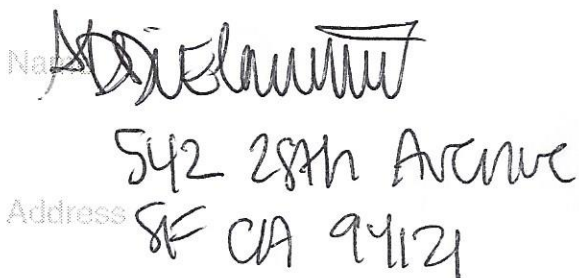 Name
542 28th Avenue
Address SF CA 94121